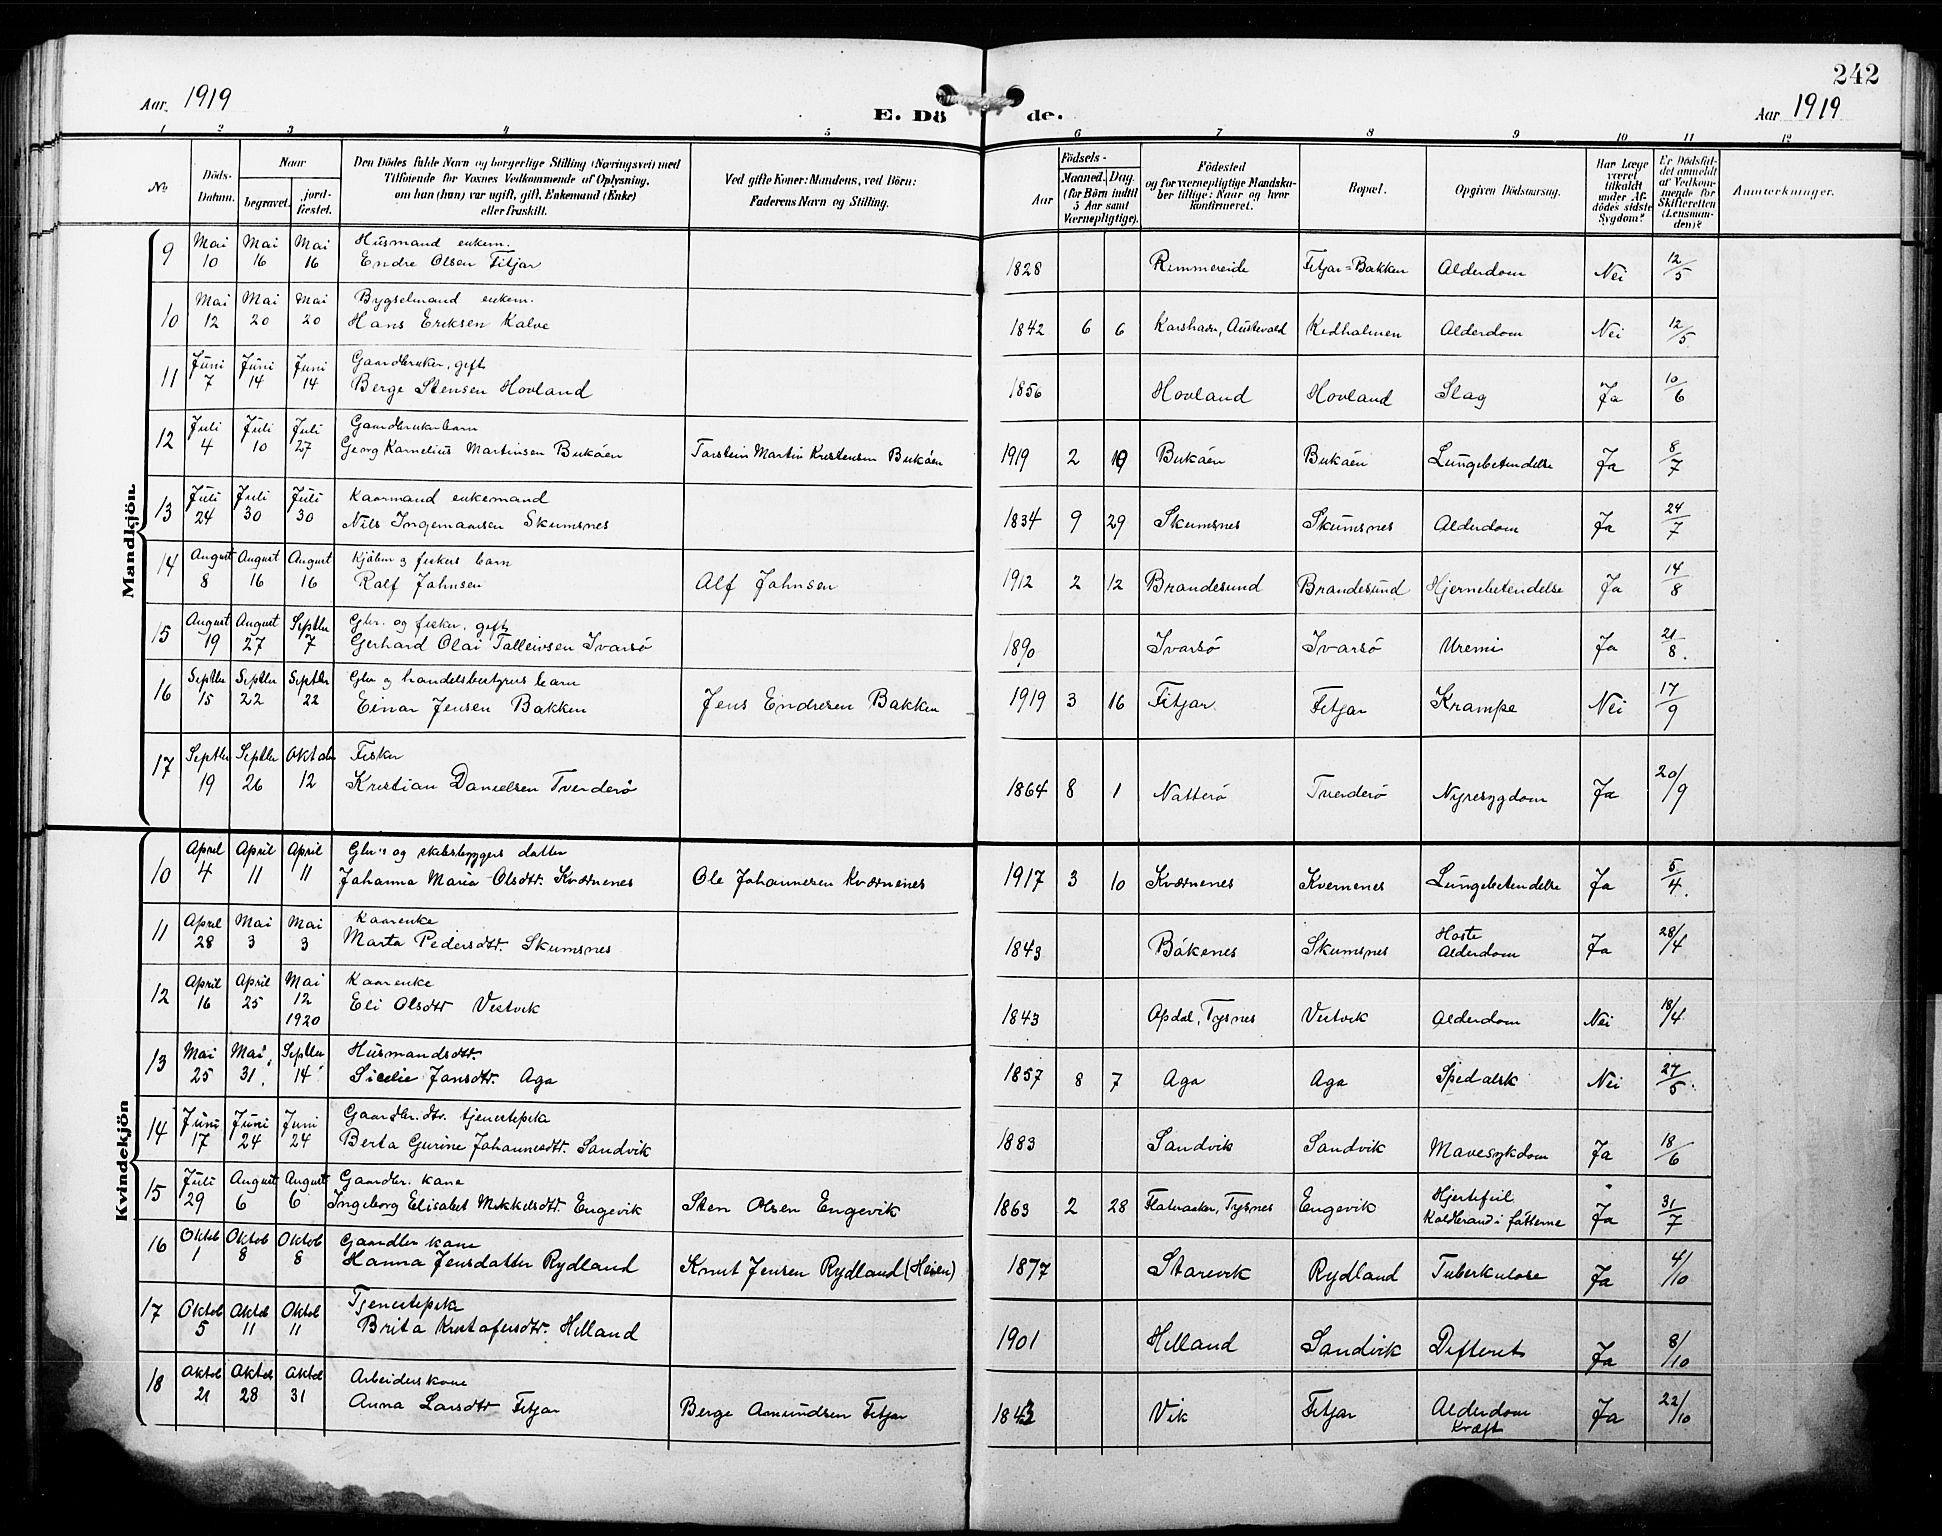 242
Aar. 1919 E. Dö de. Aar 1919
1 2 3 4 5 6 7 8 9 10 11 12
No
Döds-Datum.
Naar
begravet.
jord-fæstet.
Den Dödes fulde Navn og borgerlige Stilling (Næringsvei) med
Tilföiende for Voxnes Vedkommende af Oplysning,
om han (hun) var ugift, gift, Enkemand (Enke)
eller fraskilt.
Ved gifte Koner: Mandens, ved Börn:
Faderens Navn og Stilling.
Födsels-
Aar
Maaned. Dag.
(for Börn indtil
5 Aar samt
Værnepligtige).
Födested
og for værnepligtige Mandska-
ber tillige: Naar og hvor
konfirmeret.
Bopæl.
Opgiven Dödsaarsag.
Har Læge
været
tilkaldt
under Af-
dödes sidste
Sygdom?
Er Dödsfal-
det anmeldt
af Vedkom-
mende for
Skifteretten
(Lensman-
den)?
Anmærkninger.
Mandkjön.
9 Mai 10 Mai 16 Mai 16 Husmand enkem.
Endre Olsen Fitjar 1828 Rimmereide Fitjar=Bakken Alderdom Nei 12/5
10 Mai 12 Mai 20 Mai 20 Bygselmand enkem.
Hans Eriksen Kalve 1842 6 6 Austevold Kidholmen Alderdom Nei 12/5
11 Juni 7 Juni 14 Juni 14 Gaardbruker, gift
Berge Stensen Hovland 1856 Hovland Hovland Slag Ja 10/6
12 Juli 4 Juli 10 Juli 27 Gaardbrukerbarn
Georg Kornelius Martinsen Buköen Torstein Martin Kristensen Buköen 1919 2 19 Buköen Buköen Lungebetendelse Ja 8/7
13 Juli 24 Juli 30 Juli 30 Kaarmand enkemand
Nils Ingemansen Skumsnes 1834 9 29 Skumsnes Skumsnes Alderdom Ja 24/7
14 August 8 August 16 August 16 Kjöbm og fiskers barn
Ralf Johnsen Alf Johnsen 1912 2 12 Brandesund Brandesund Hjernebetendelse Ja 14/8
15 August 19 August 27 Septbr 7 Gbr. og fisker, gift
Gerhard Olai Talleivsen Ivarsö 1890 Ivarsö Ivarsö Uremi Ja 21/8.
16 Septbr 15 Septbr 22 Septbr 22 Gbr og handelsbestyrers barn
Einar Jensen Bakken Jens Endresen Bakken 1919 3 16 Fitjar Fitjar Krampe Nei 17/9
17 Septbr 19 Septbr 26 Oktober 12 Fisker
Kristian Danielsen Tverderö 1864 8 1 Natterö Tverderö Nyresygdom Ja 20/9
Kvindekjön
10 April 4 April 11 April 11 Gbr's og skibsbyggers datter
Johanna Maria Olsdtr. Kværnenes Ole Johannesen Kværnenes 1917 3 10 Kværnenes Kvernenes Lungebetendelse Ja 5/4.
11 April 28 Mai 3 Mai 3 Kaarenke
Marta Pedersdtr. Skumsnes 1843 Bökenes Skumsnes Hoste
Alderdom Ja 28/4
12 April 16 April 25 Mai 12 1920 Kaarenke
Eli Olsdtr Vestvik 1843 Opdal, Tysnes Vestvik Alderdom Nei 18/4
13 Mai 25 Mai 31. Septbr 14 Husmandsdtr.
Sicelie Jansdtr. Aga 1857 8 7 Aga Aga Spedalsk Nei 27/5.
14 Juni 17 Juni 24 Juni 24 Gaardbr.dtr. tjenestepike
Berta Gurine Johannesdtr. Sandvik 1883 Sandvik Sandvik Mavesykdom Ja 18/6
15 Juli 29 August 6 August 6 Gaardbr. kone
Ingeborg Elisabet Mikkelsdtr. Engevik Sten Olsen Engevik 1863 2 28 Flatraaker, Tysnes Engevik Hjertefeil
Koldbrand i föttene Ja 31/7
16 Oktob 1 Oktob 8 Oktob 8 Gaardbr kone
Hanna Jensdatter Rydland Knut Jensen Rydland (Heien) 1877 Storevik Rydland Tuberkulose Ja 4/10
17 Oktob 5 Oktob 11 Oktob 11 Tjenestepike
Brita Kristofersdtr. Helland 1901 Helland Sandvik Difterit Ja 8/10
18 Oktob 21 Oktob 28 Oktob 31 Arbeiderskone
Anna Larsdtr Fitjar Berge Amundsen Fitjar 1843 Vik Fitjar Alderdom
Kræft Ja 22/10